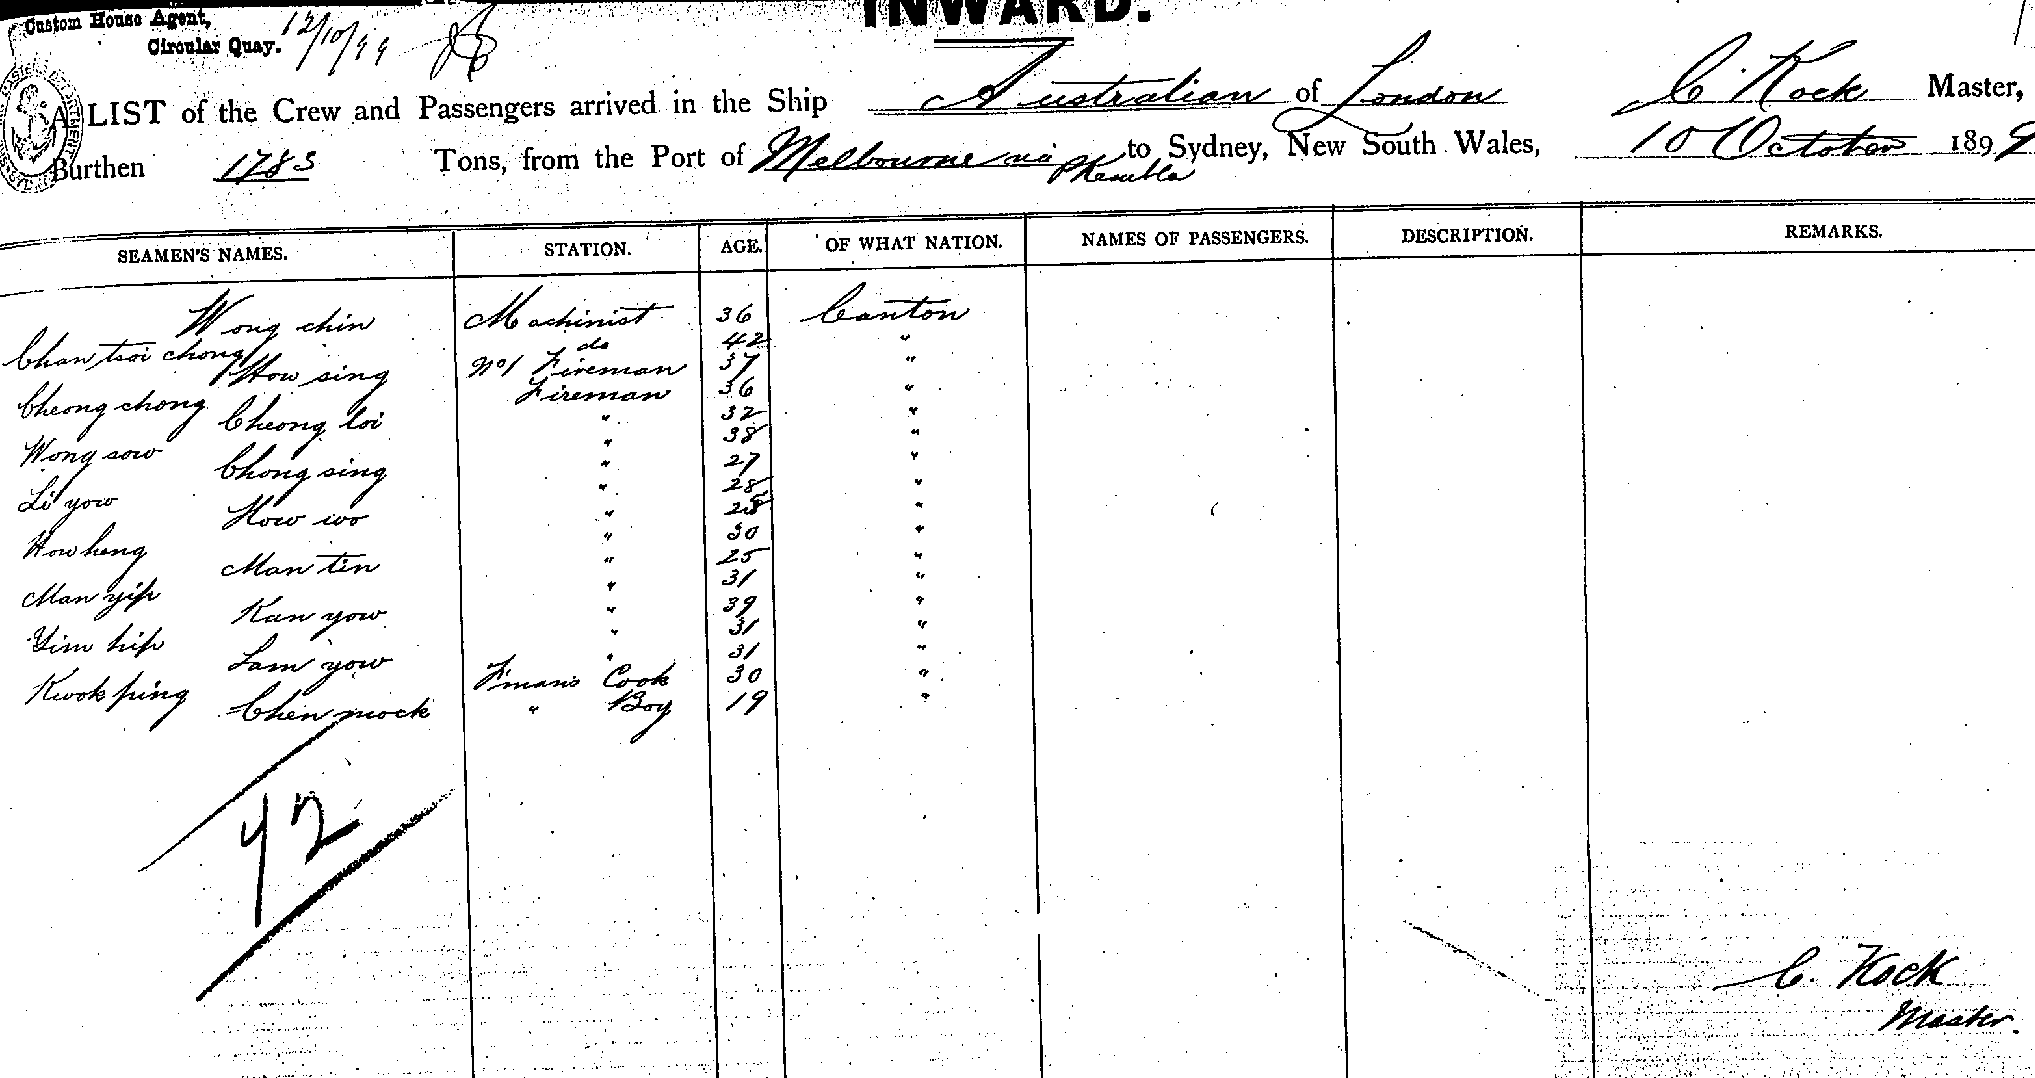 Custom House Agent,
Circular Quay. 12/10/99
INWARD.
A LIST of the Crew and Passengers arrived in the Ship Australian of London C. Kock Master,
Burthen 1783 Tons, from the Port of Melbourne via PKembla to Sydney, New South Wales, 10 October 1899
SEAMEN'S NAMES. STATION. AGE. OF WHAT NATION. NAMES OF PASSENGERS. DESCRIPTION. REMARKS.
Wong chin Machinist 36 Canton
Chan tsoi chong do 42 "
How sing No 1 Fireman 37 "
Cheong chong Fireman 36 "
Cheong loi " 32 "
Wong sow " 38 "
Chong sing " 27 "
Li yow " 28 "
How wo " 28 "
How heng " 30 "
Man tin " 25 "
Man yip " 31 "
Kan yow " 39 "
Yim hip " 31 "
Lam yow " 31 "
Kwok ping F'mans Cook 30 "
Chen mock " Boy 19 "
42
C. Kock
Master.